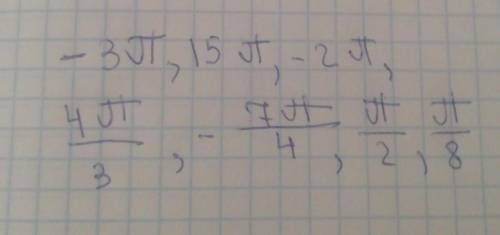 - 3π, 15π, -2π,
4π/3, - 7π/4, π/2, π/8